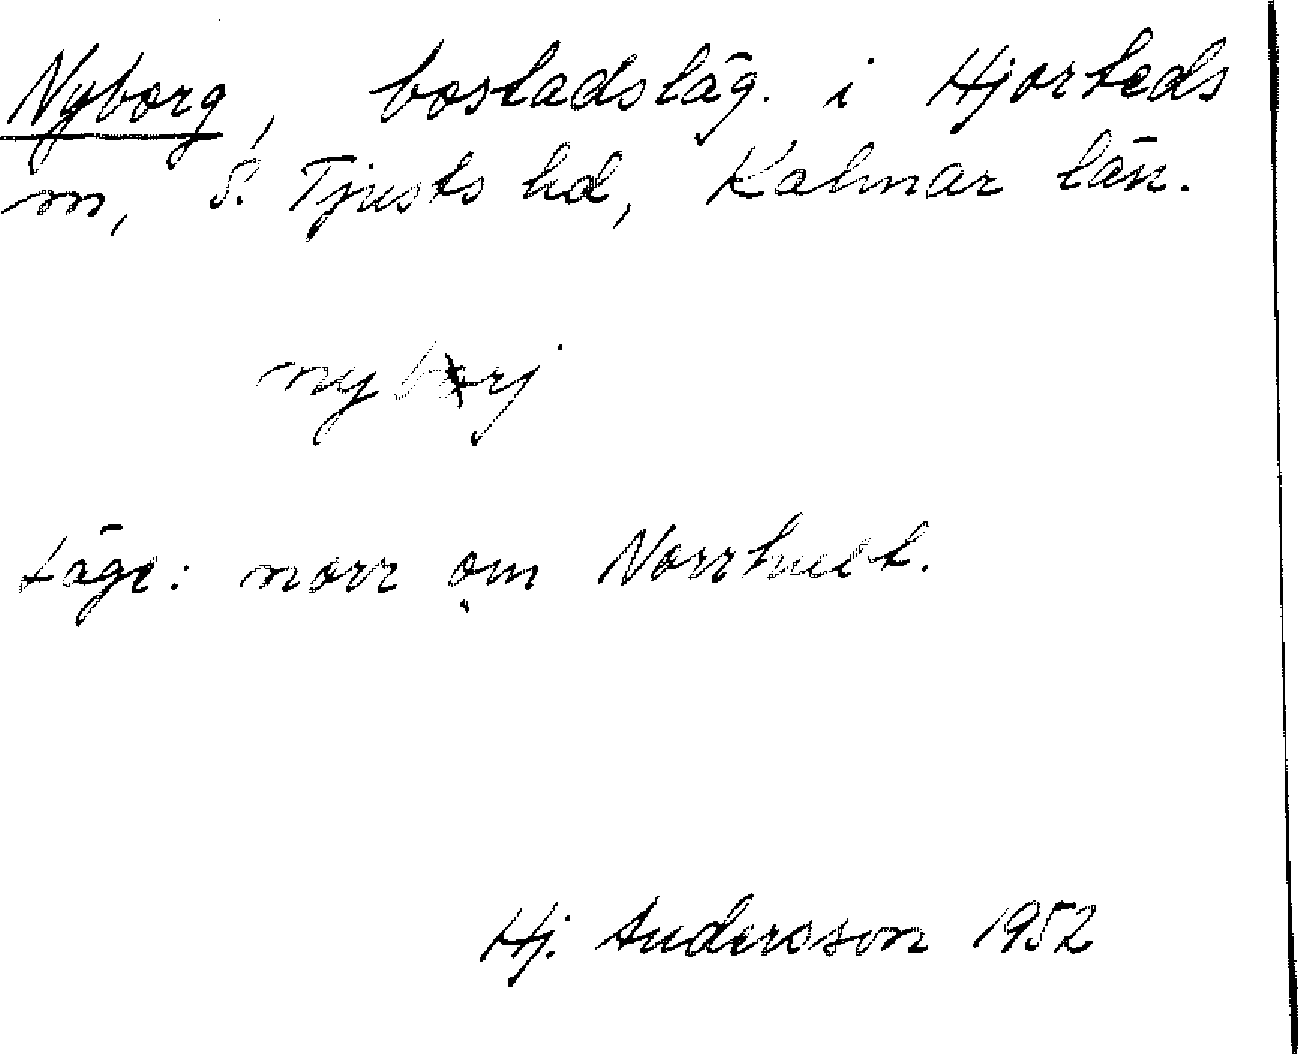 Nyborg, bostadsläg. i Hjorteds
sn, S. Tjusts hd, Kalmar län.
nyborj
Läge: norr om Norrhult.
Hj. Andersson 1952